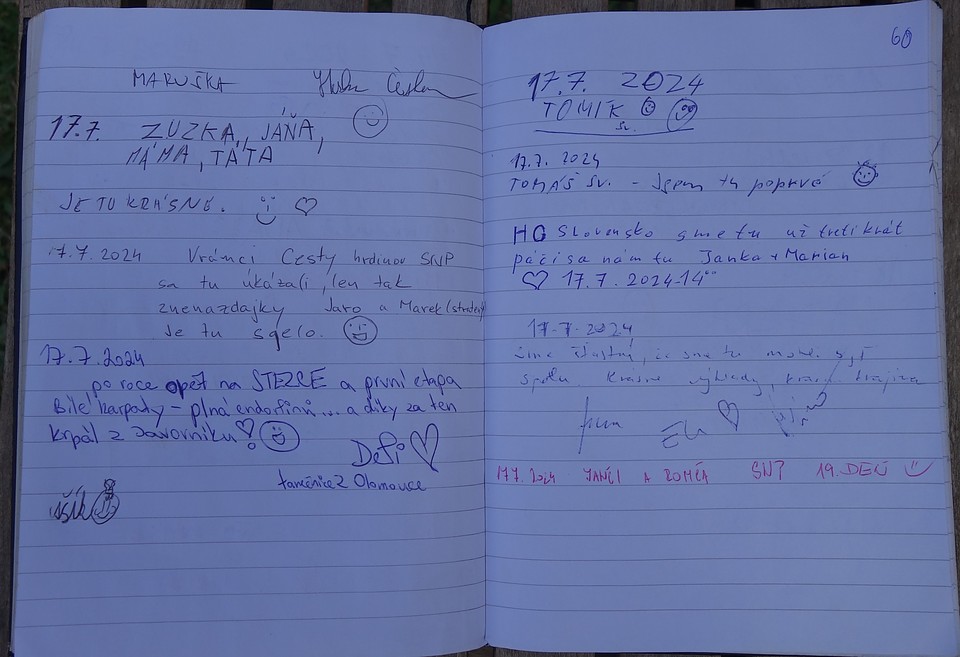 MARUŠKA
17.7. ZUZKA, JÁŇA,
MÁMA, TÁTA
JE TU KRÁSNĚ.
17.7.2024 Vrámci Cesty hrdinov SNP
sa tu ukázali, len tak
znenazdajky Jaro a Marek (stratený)
Je tu sqelo.
17.7.2024
po roce opět na STEZCE a první etapa
Bílé Karpaty – plná endorfinů... a díky za ten
krpál z Javorníku!
DeSi
tanečnice z Olomouce
60
17.7. 2024
TOMÍK
sv.
17.7. 2024
TOMÁŠ SV. - Jsem tu poprvé
HO Slovensko sme tu už tretíkrát
páči sa nám tu Janka + Marian
17.7.2024-14⁰⁰
17.7.2024
sme šťastní, že sme tu
spolu. Krásne výhľady, krajina
Ela
17.7.2024 JANČI A ROMČA SNP 19.DEŇ